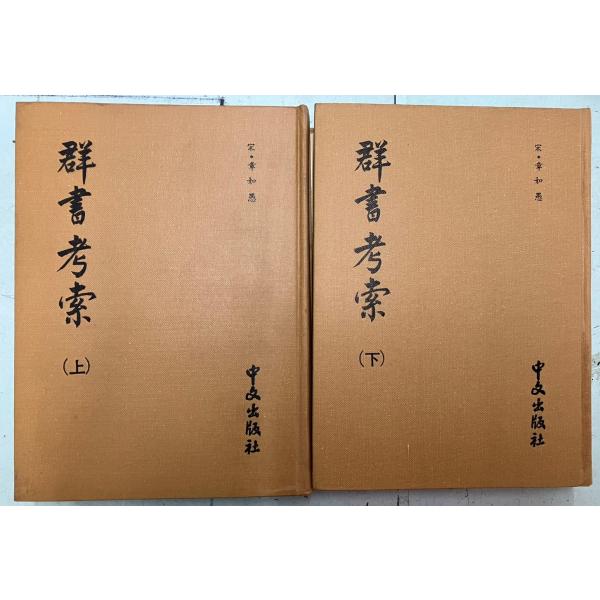 群書考索
(上)
宋・章如愚
中文出版社
群書考索
(下)
宋・章如愚
中文出版社